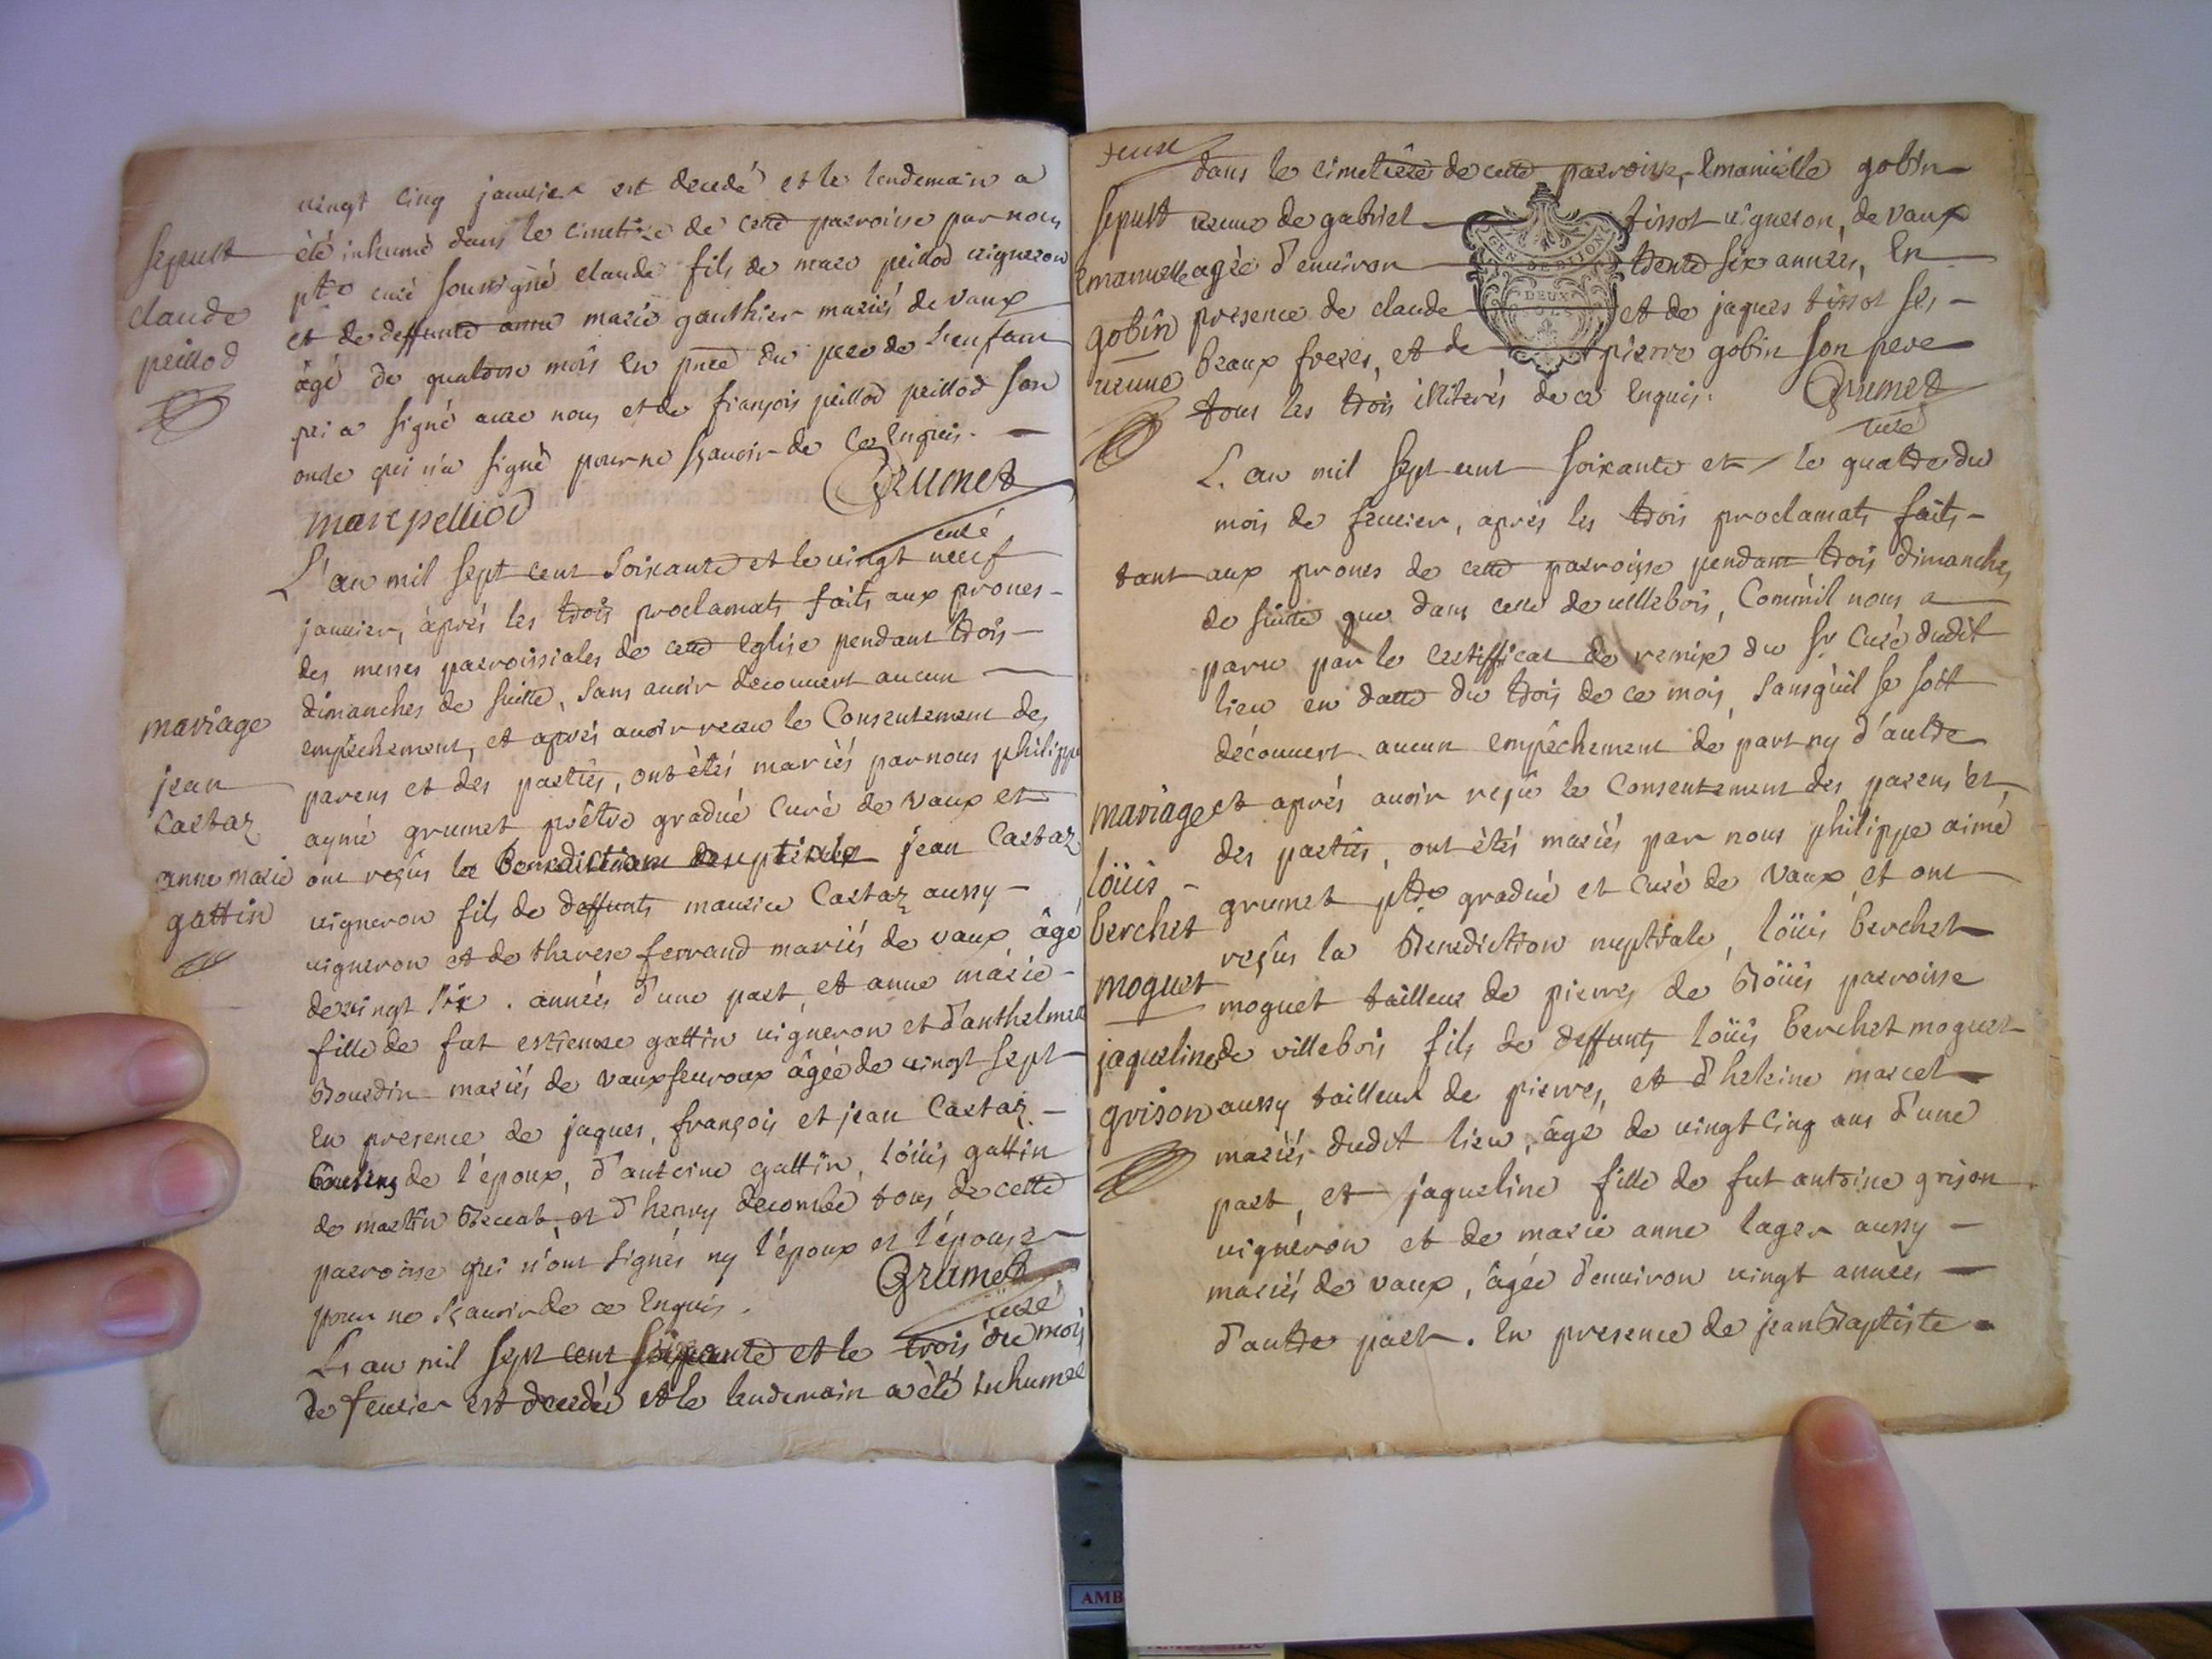 vingt cinq janvier est decedé et le lendemain a
été inhumé dans le cimetire de cette parroisse par nous
ptre curé soussigné claude fils de marc peillod vigneron
et de deffunte anne marie gauthier mariés de vaux
âgé de quatorse mois en pnce du pere de l'enfant
qui a signé avec nous et de françois peillod peillod son
oncle qui n'a signé pour ne sçavoir de ce enquis.
Grumet
curé
marc pelliod
sepult
claude
peillod
L'an mil sept cent soixante et le vingt neuf
janvier, après les trois proclamats faits aux prones
des messes parroissiales de cette eglise pendant trois
dimanches de suitte, sans avoir decouvert aucun
empêchement, et après avoir receu le consentement des
parens et des parties, ont étés mariés par nous philippe
aymé grumet prêtre gradué curé de vaux et
ont reçus la Benediction nuptiale jean Castaz
vigneron fils de deffunts maurice Castaz aussy
vigneron et de therese ferrand mariés de vaux, âgé
de vingt six . années d'une part et anne marie
fille de fut estienne gattin vigneron et d'anthelmette
Bourdin mariés de vauxfevroux âgée de vingt sept
En presence de jaques, françois et jean Castaz
Cousins de l'époux, d'antoine gattin, loüis gattin
de martin et d'henry decombe tous de cette
parroisse qui n'ont signés ny l'époux et l'épouse
pour ne sçavoir de ce enquis.
Grumet
curé
mariage
jean
Castaz
anne marie
gattin
L'an mil sept cent soixante et le trois du mois
de fevrier est decedée et le lendemain a été inhumée
dans le cimetiere de cette parroisse, Emanüelle gobin
veuve de gabriel tissot vigneron, de vaux
agée d'environ trente six années, En
presence de claude et de jaques tissot ses
beaux freres, et de pierre gobin son pere
tous les trois illiterés de ce enquis.
Grumet
curé
sepult
Emanuelle
gobin
veuve
GEN. DE DIJON
DEUX
SOLS
L'an mil sept cent soixante et le quatre du
mois de fevrier, après les trois proclamats faits
tant aux prones de cette parroisse pendant trois dimanches
de suitte que dans celle de villebois, Comm'il nous a
paru par le certifficat de remise du Sr Curé dudit
lieu en datte du trois de ce mois, sans qu'il se soit
découvert aucun empêchement de part ny d'autre
et après avoir reçu le consentement des parens et
des parties, ont étés mariés par nous philippe aimé
grumet ptre gradué et curé de vaux, et ont
reçus la Benediction nuptiale, loüis berchet
moguet tailleur de pierres de Boüis parroisse
de villebois fils de deffunts loüis berchet moguet
aussy tailleur de pierres, et d'heleine marcel
mariés dudit lieu, âgé de vingt cinq ans d'une
part, et jaqueline fille de fut antoine grison
vigneron et de marie anne lager aussy
mariés de vaux, âgée d'environ vingt années
d'autre part. En presence de jean Baptiste
mariage
loüis
berchet
moguet
jaqueline
grison